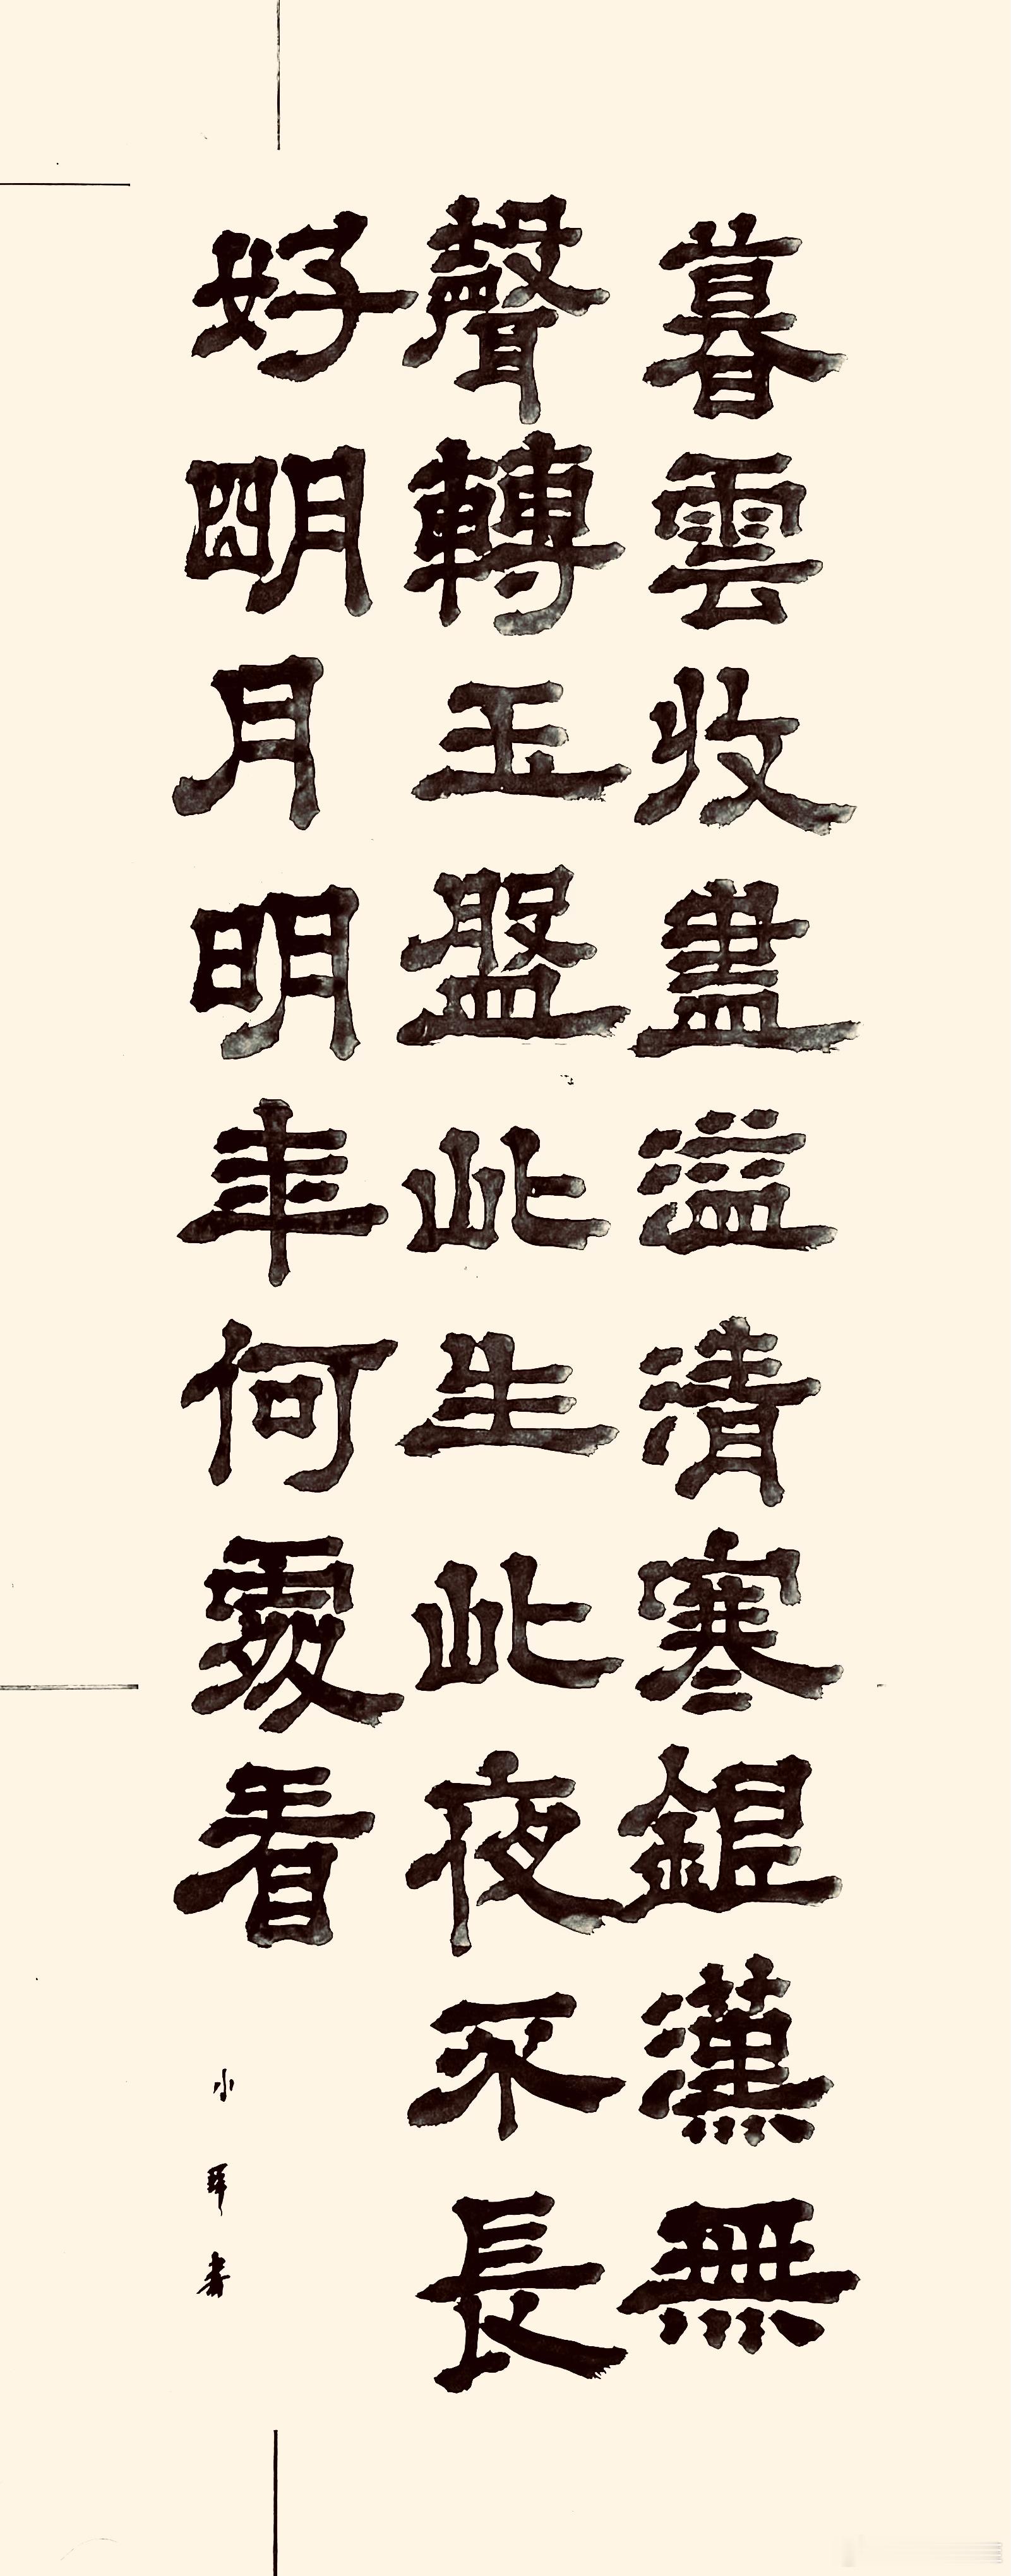 暮雲收盡溢清寒銀漢無
聲轉玉盤此生此夜不長
好明月明年何處看
小琿書